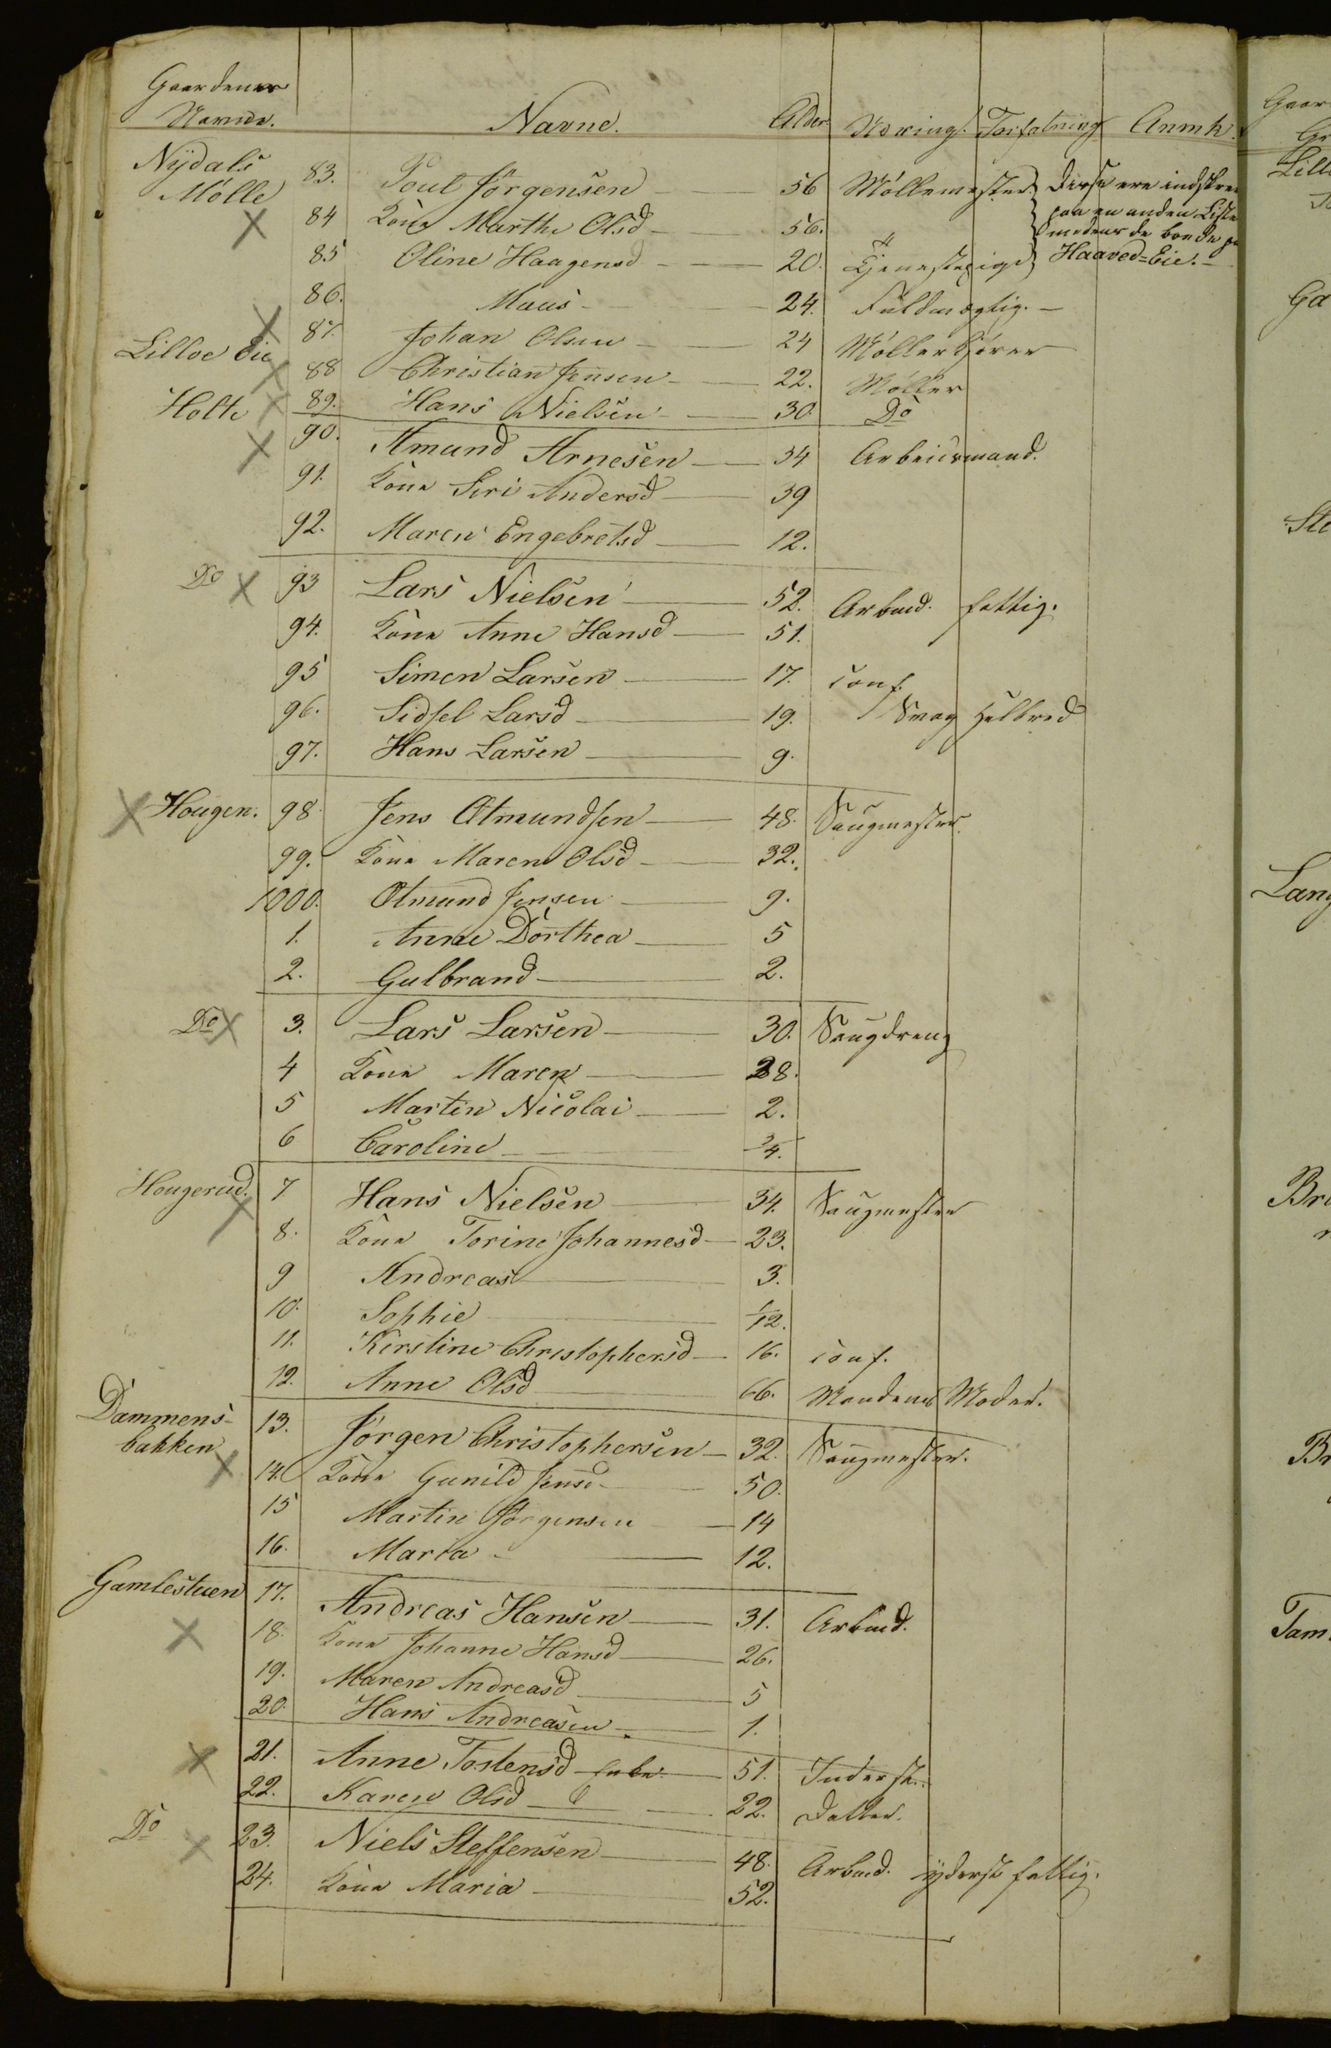 Gaardenes
Navne. Navne. Alder Næring. Forfatning Anmk.
Nÿdals 83. Poul Jørgensen 56 Møllemester Disse ere indskrev
Mølle 84 Kone Marthe Olsd 56. paa en anden Liste
medens de boede
85 Oline Haagensd 20. Tjenestepige Haaved-Eie.
86. Maus 24. Fuldmægtig.
87. Johan Olsen 24 Møllerkjører
Lilloe Eie 88 Christian Jensen 22. Møller
Holte 89. Hans Nielsen 30. Do
90. Amund Arnesen 34 Arbeidsmand.
91. Kone Siri Andersd 39
92. Maren Engebretsd 12.
Do 93 Lars Nielsen 52. Arbmd. fattig.
94. Kone Anne Hansd 51.
95 Simen Larsen 17. conf.
96. Sidsel Larsd 19. Svag Helbred
97. Hans Larsen 9.
Hougen. 98. Jens Amundsen 48. Saugmester
99. Kone Maren Olsd 32.
1000. Amund Jensen 9.
1. Anne Dorthea 5
2. Gulbrand 2.
Do 3. Lars Larsen 30. Saugdreng
4 Kone Maren 28.
5 Martin Nicolai 2.
6 Caroline 3/4.
Hougerud. 7 Hans Nielsen 34. Saugmester
8. Kone Torine Johannesd 23.
9 Andreas 3.
10. Sophie 1/12.
11. Kirstine Christophersd 16. conf.
12. Anne Olsd 66. Mandens Moder.
Dammens- 13. Jørgen Christophersen 32. Saugmester.
bakken 14. Kone Gunild Jensd 50.
15 Martin Jørgensen 14
16. Maria 12.
Gamlestuen 17. Andreas Hansen 31. Arbmd.
18. Kone Johanne Hansd 26.
19. Maren Andreasd 5
20. Hans Andreasen 1.
21. Anne Tostensd 51. Inderst.
22. Karen Olsd 22. Datter.
Do 23. Niels Steffensen 48. Arbmd. ÿderst fattig.
24. Kone Maria 52.
Lill
Ga
Ste
Lang
Bre
Br
Tam